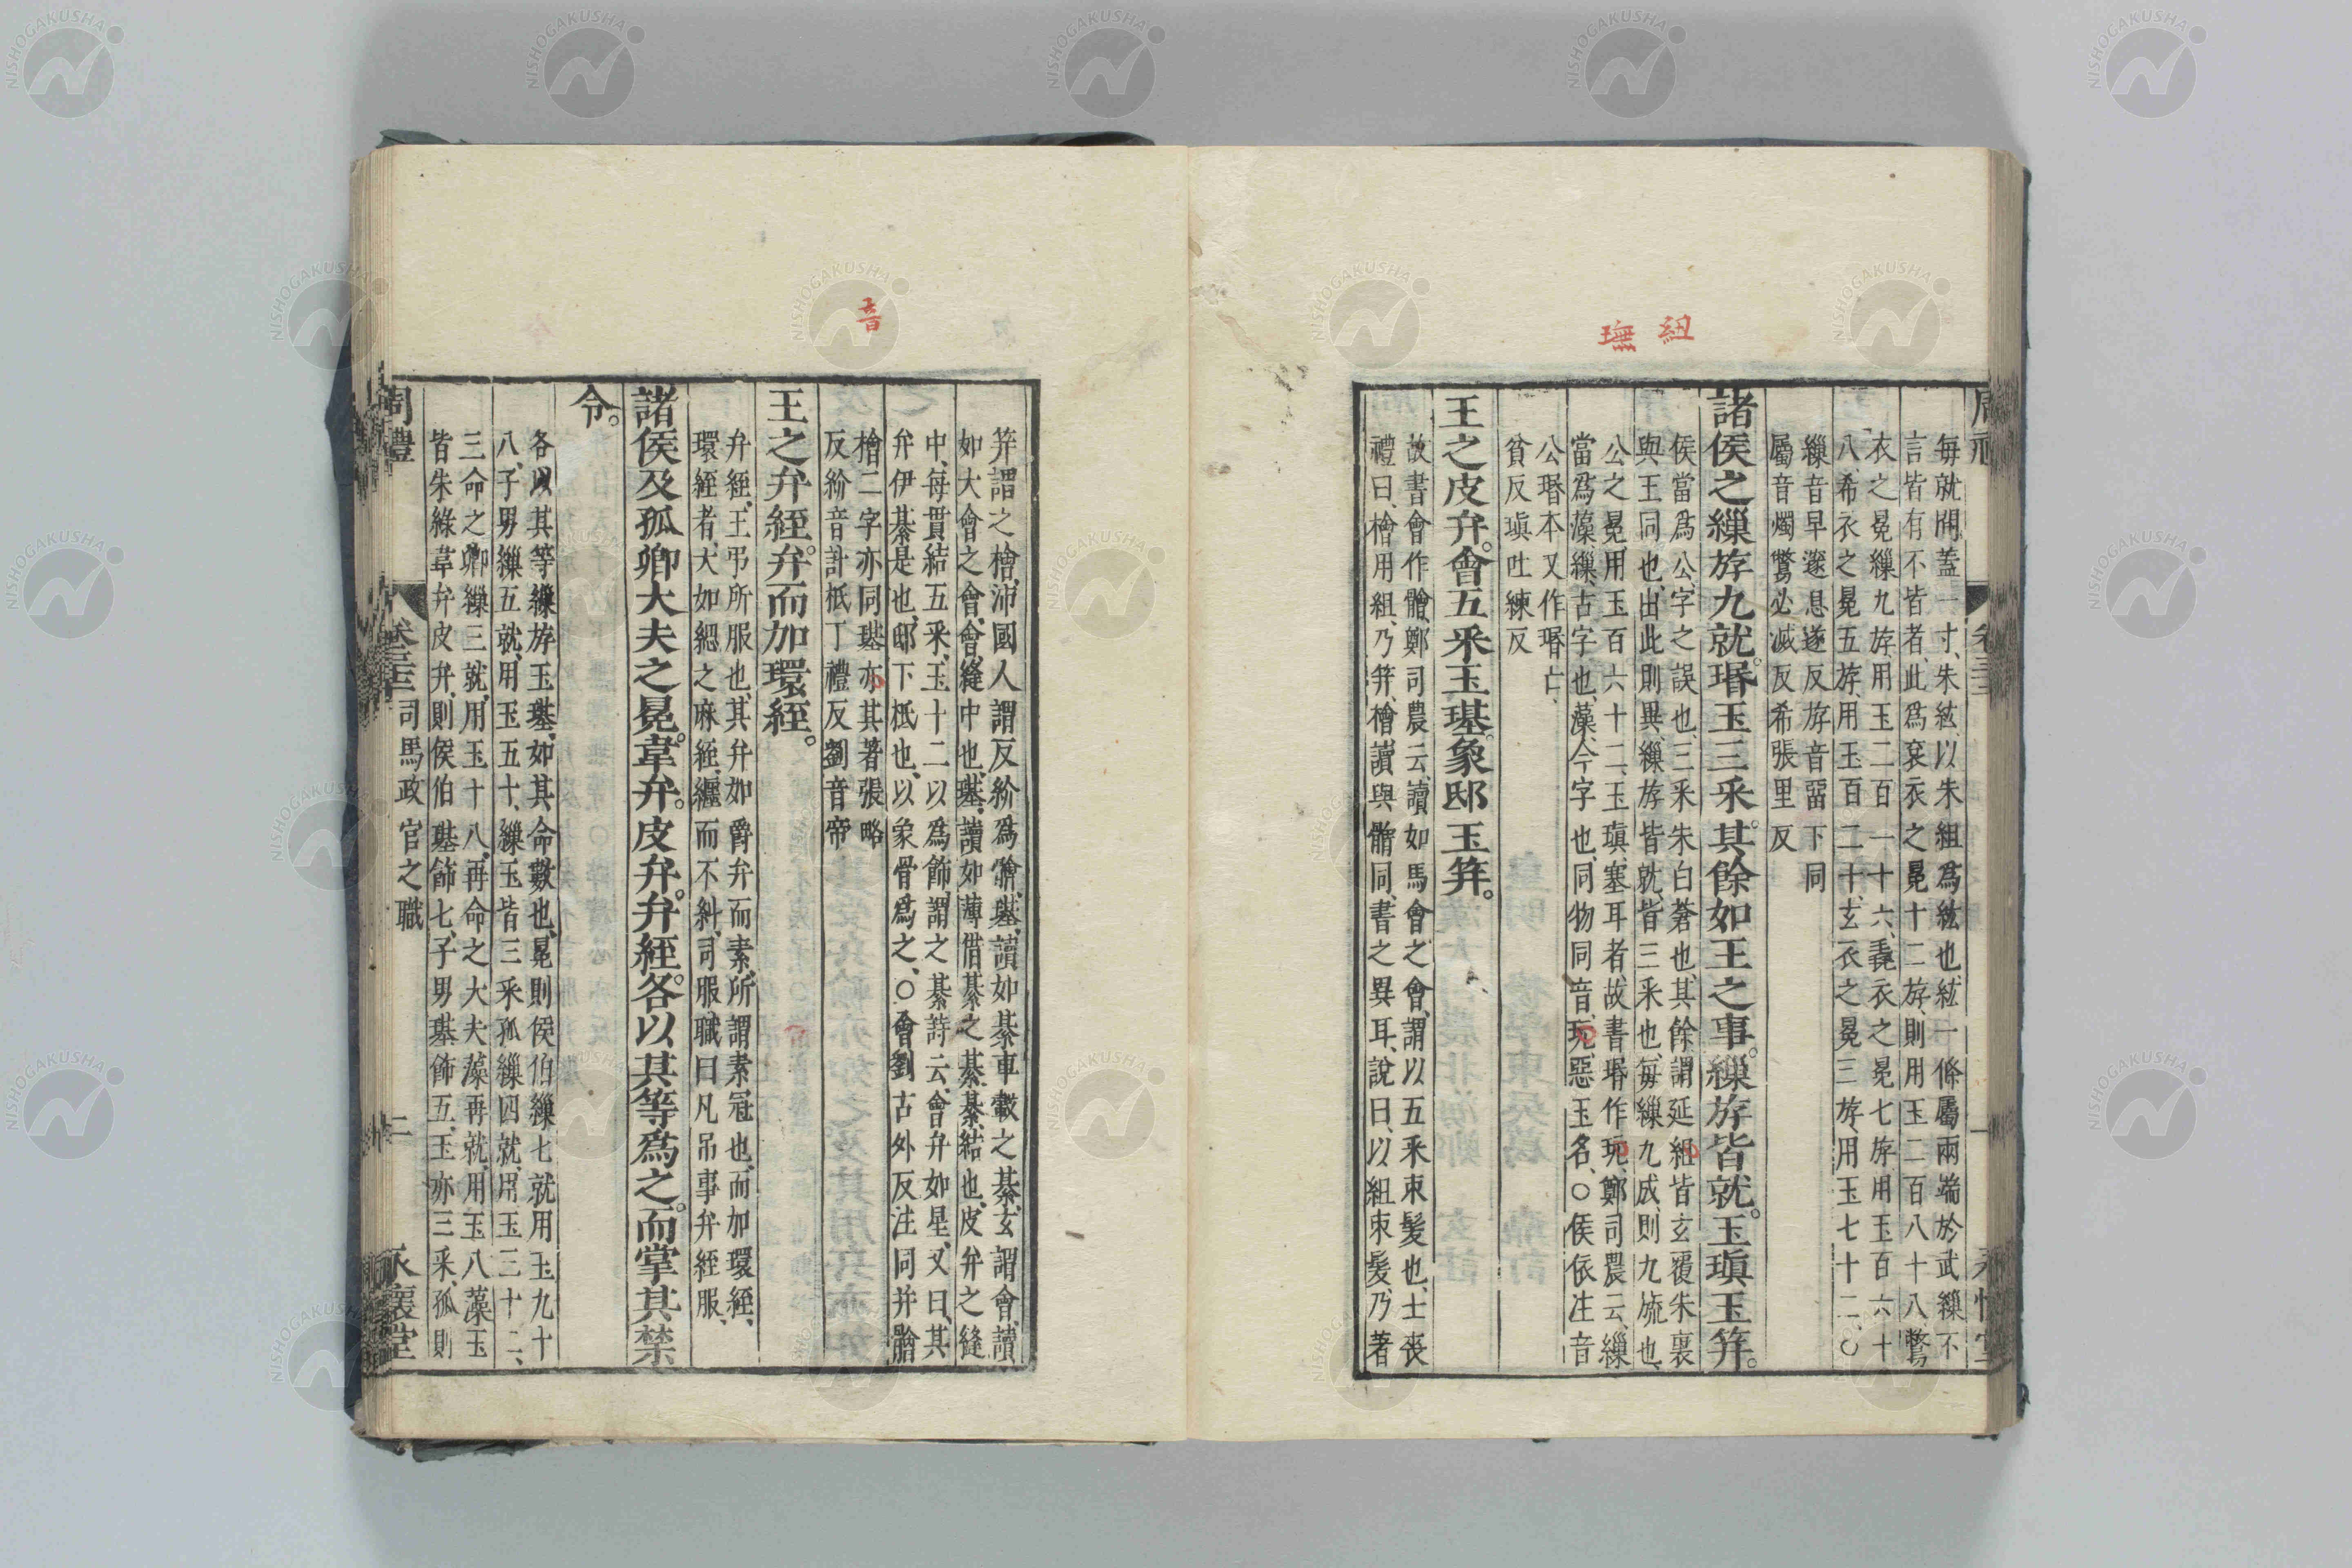 紐
璑
每就間蓋一寸、朱紘、以朱組爲紘也、紘一條屬兩端於武繅不
言皆有不皆者、此爲袞衣之冕十二斿、則用玉二百八十八、鷩
衣之冕繅九斿用玉二百一十六、毳衣之冕七斿、用玉百六十
八、希衣之冕五斿、用玉百二十、玄衣之冕三斿、用玉七十二、○
繅音早邃息遂反斿音畱下同
屬音燭鷩必滅反希張里反
諸侯之繅斿九就。瑉玉三采。其餘如王之事。繅斿皆就。玉瑱玉笄。
侯當爲公、字之誤也、三采朱白蒼也、其餘謂延組皆玄覆朱裏
與王同也、出此則異、繅斿皆就、皆三采也、每繅九成、則九旒也、
公之冕、用玉百六十二、玉瑱、塞耳者、故書瑉作玩、鄭司農云、繅
當爲藻、繅、古字也、藻、今字也、同物同音、玩、惡玉名、○侯依注音
公瑉本又作珉亡
貧反瑱吐練反
王之皮弁。會五采玉璂。象邸玉笄。
故書會作䯤、鄭司農云、讀如馬會之會、謂以五采束髮也、士喪
禮曰、檜用組、乃笄、檜讀與䯤同、書之異耳、說曰、以組束髮、乃著
音
笄謂之檜、沛國人謂反紒爲䯤、璂、讀如綦車轂之綦、玄謂會、讀
如大會之會、會、縫中也、璂、讀如薄借綦之綦、綦、結也、皮弁之縫
中、每貫結五采、玉十二以爲飾、謂之綦、詩云、會弁如星、又曰、其
弁伊綦是也、邸下柢也、以象骨爲之、○會劉古外反注同幷䯤
檜二字亦同璂亦其著張略
反紒音計柢丁禮反劉音帝
王之弁絰。弁而加環絰。
弁絰、王弔所服也、其弁如爵弁而素、所謂素冠也、而加環絰、
環絰者、大如緦之麻絰、纏而不糾、司服職曰凡弔事弁絰服、
諸侯及孤卿大夫之冕。韋弁。皮弁。弁絰。各以其等爲之。而掌其禁
令。
各以其等繅斿玉璂、如其命數也、冕則侯伯繅七就用玉九十
八、子男繅五就、用玉五十、繅玉皆三采孤繅四就、用玉三十二、
三命之卿繅三就、用玉十八、再命之大夫藻再就、用玉八藻玉
皆朱綠韋弁皮弁、則侯伯璂飾七、子男璂飾五、玉亦三采、孤則
周禮 卷三十二 司馬政官之職 二 永懷堂